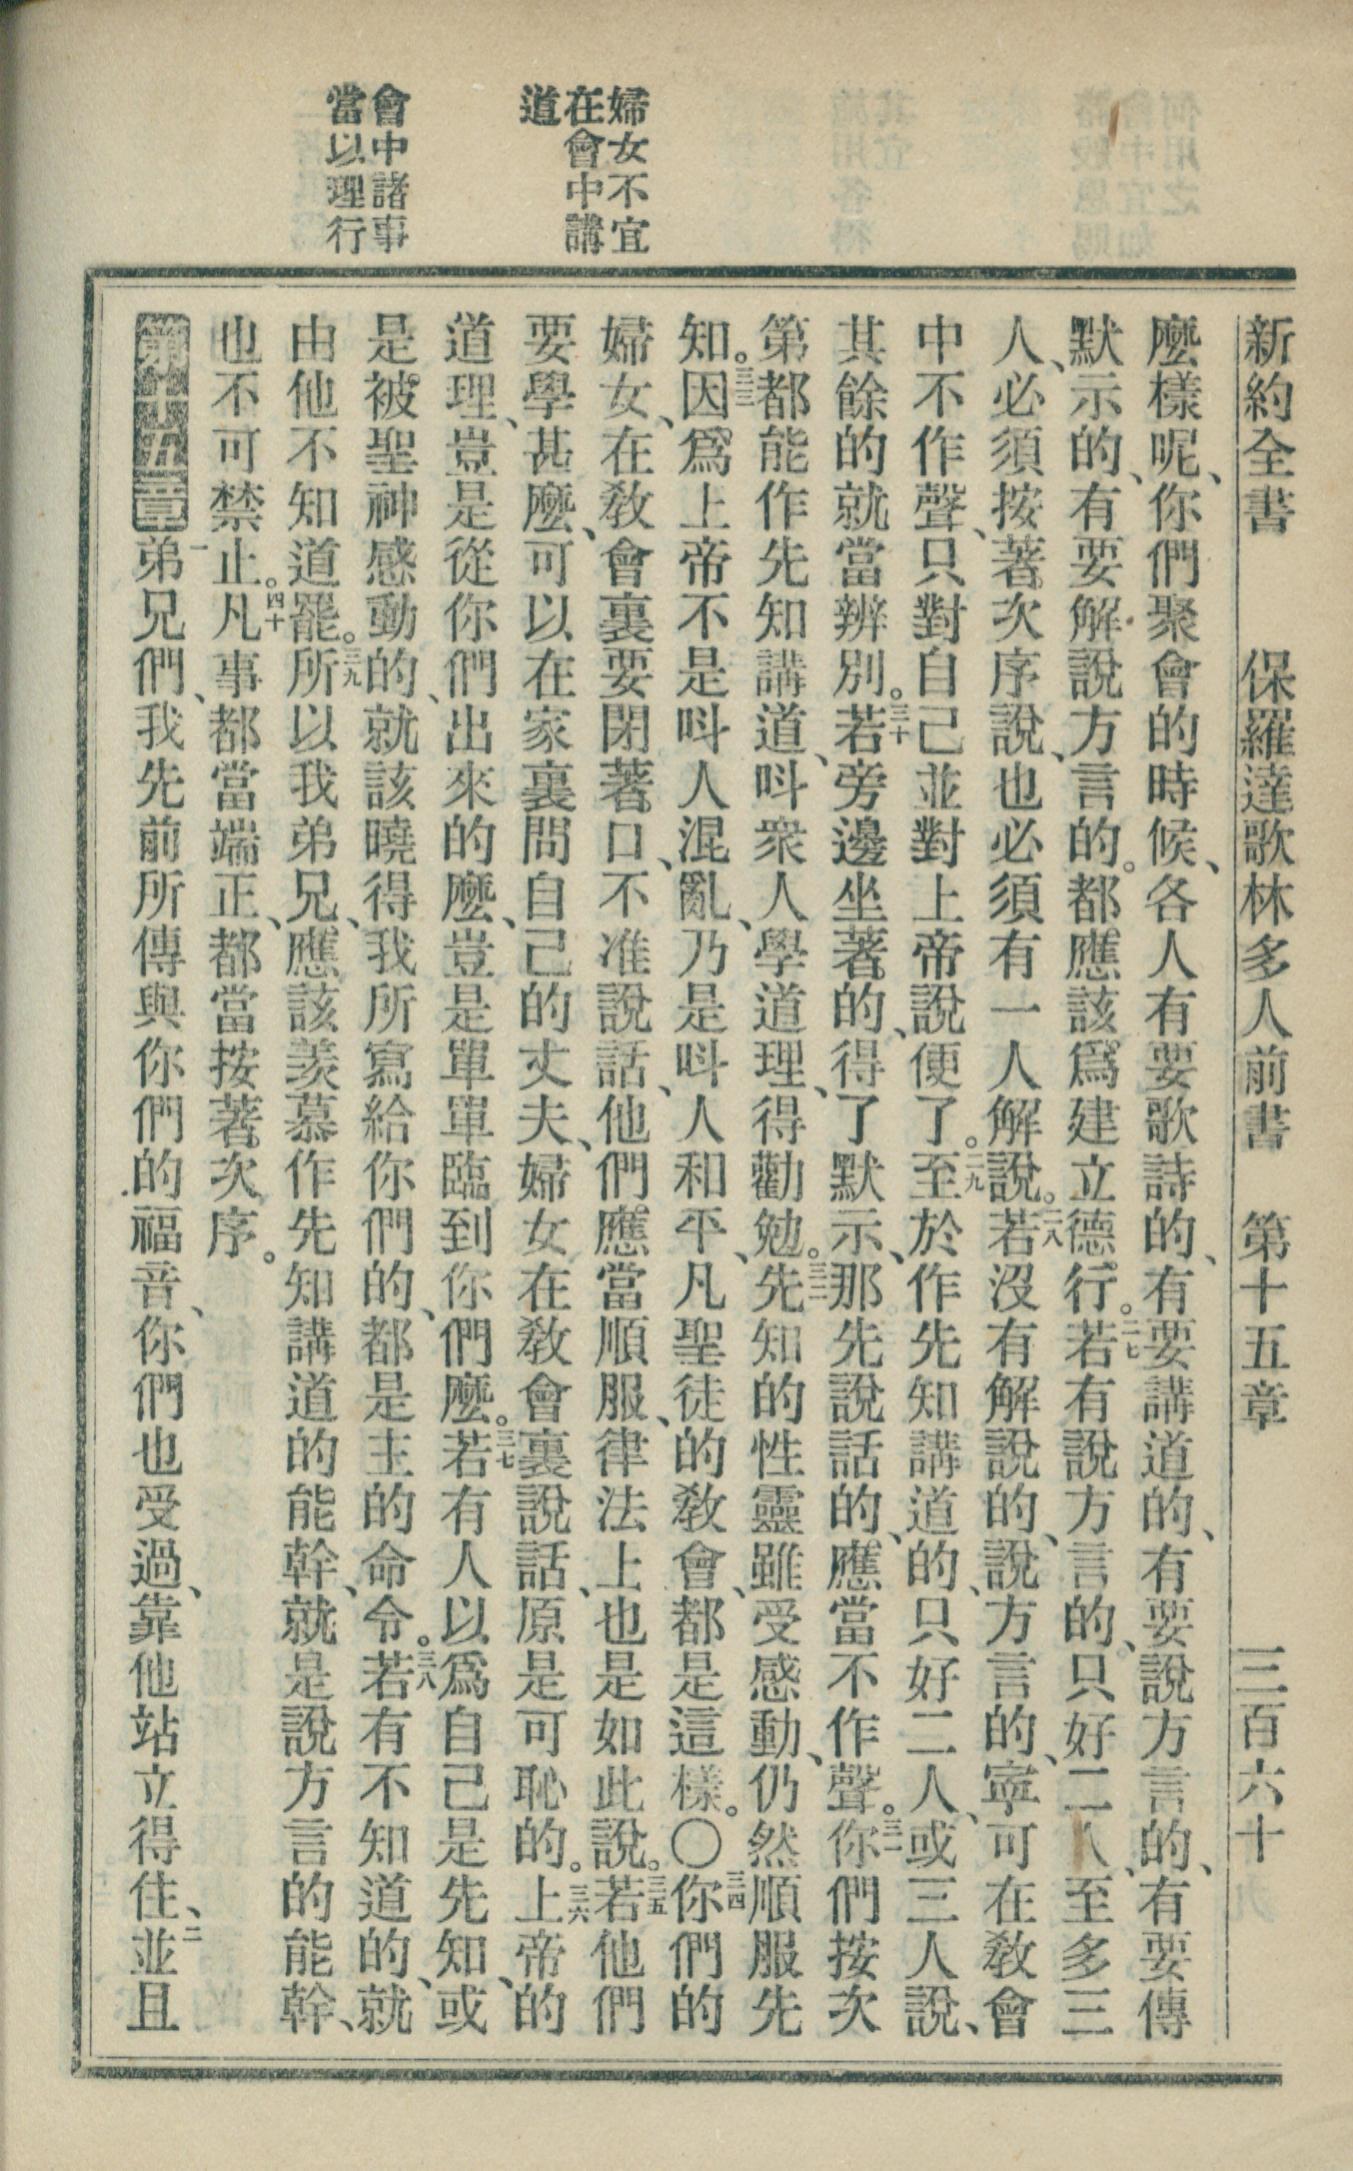 新約全書　保羅達歌林多人前書　第十五章　三百六十
婦女不宜
在會中講
道
會中諸事
當以理行
麼樣呢、你們聚會的時候、各人有要歌詩的、有要講道的、有要說方言的、有要傳
默示的、有要解說方言的。都應該爲建立德行。二七若有說方言的、只好二人、至多三
人、必須按著次序說、也必須有一人解說。二八若沒有解說的、說方言的、寧可在敎會
中不作聲、只對自己並對上帝說便了。二九至於作先知講道的、只好二人、或三人說、
其餘的就當辨別。三十若旁邊坐著的、得了默示、那先說話的、應當不作聲。三一你們按次
第都能作先知講道、呌衆人學道理、得勸勉。三二先知的性靈雖受感動、仍然順服先
知。三三因爲上帝不是呌人混亂、乃是呌人和平、凡聖徒的敎會、都是這樣。〇三四你們的
婦女、在敎會裏要閉著口、不准說話、他們應當順服、律法上也是如此說。三五若他們
要學甚麼、可以在家裏問自己的丈夫、婦女在敎會裏說話、原是可恥的。三六上帝的
道理、豈是從你們出來的麼、豈是單單臨到你們麼。三七若有人以爲自己是先知、或
是被聖神感動的、就該曉得我所寫給你們的、都是主的命令。三八若有不知道的、就
由他不知道罷。三九所以我弟兄、應該羨慕作先知講道的能幹、就是說方言的能幹、
也不可禁止。四十凡事都當端正、都當按著次序。
第十五章一弟兄們、我先前所傳與你們的福音、你們也受過、靠他站立得住、二並且